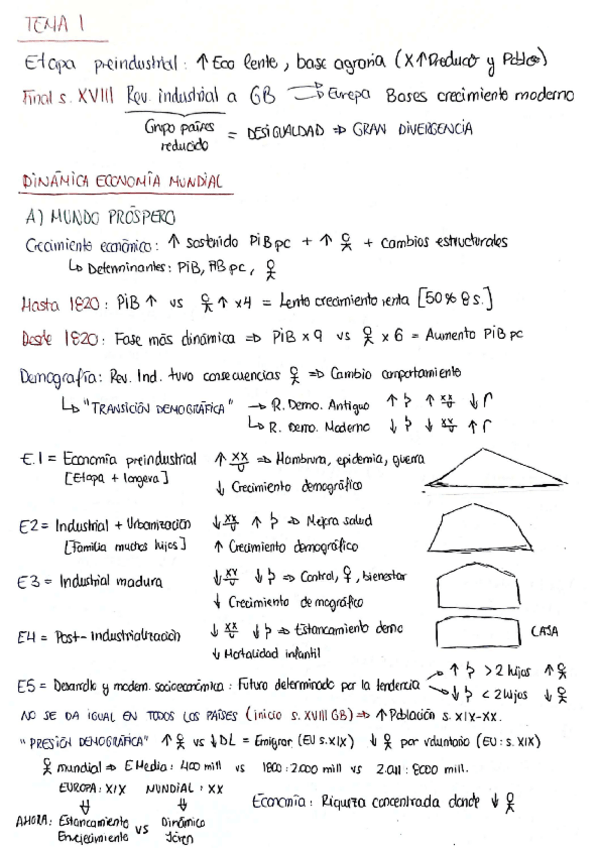 TEMA 1
Etapa preindustrial: ↑ Eco lente, base agraria (X↑Producc° y Pobla°)
Final s. XVIII Rev. industrial a GB → Europa Bases crecimiento moderno
Grupo países reducido = DESIGUALDAD ⇒ GRAN DIVERGENCIA
DINÁMICA ECONOMÍA MUNDIAL
A) MUNDO PRÓSPERO
Crecimiento económico: ↑ sostenido PiB pc + ↑ + cambios estructurales
↳ Determinantes: PiB, PiB pc,
Hasta 1820: PiB ↑ vs ↑ x4 = Lento crecimiento renta [50% 8 s.]
Desde 1820: Fase más dinámica ⇒ PiB x 9 vs x 6 = Aumento PiB pc
Demografía: Rev. Ind. tuvo consecuencias ⇒ Cambio comportamiento
↳ "TRANSICIÓN DEMOGRÁFICA" → R. Demo. Antiguo ↑ ↑ ↓
↳ R. Demo. Moderno ↓ ↓ ↑
E.1 = Economía preindustrial ↑ ⇒ Hambruna, epidemia, guerra
[Etapa + longeva] ↓ Crecimiento demográfico
E2 = Industrial + Urbanización ↓ ↑ ⇒ Mejora salud
[Familia muchos hijos] ↑ Crecimiento demográfico
E3 = Industrial madura ↓ ↓ ⇒ Control, ♀, bienestar
↓ Crecimiento demográfico
E4 = Post-industrialización ↓ ↓ ⇒ Estancamiento demo CAJA
↓ Mortalidad infantil
E5 = Desarrollo y modern. socioeconómica: Futuro determinado por la tendencia → ↑ > 2 hijos ↑
→ ↓ < 2 hijos ↓
NO SE DA IGUAL EN TODOS LOS PAÍSES (inicio s. XVIII GB) ⇒ ↑ Población s. XIX-XX.
"PRESIÓN DEMOGRÁFICA" ↑ vs ↓DL = Emigrar (EU s.XIX) ↓ por voluntario (EU: s. XIX)
mundial ⇒ E Media: 400 mill vs 1800: 2.000 mill vs 2.011: 8000 mill.
EUROPA: XIX MUNDIAL: XX Economía: Riqueza concentrada donde ↓
AHORA: Estancamiento Envejecimiento vs Dinámico Joven